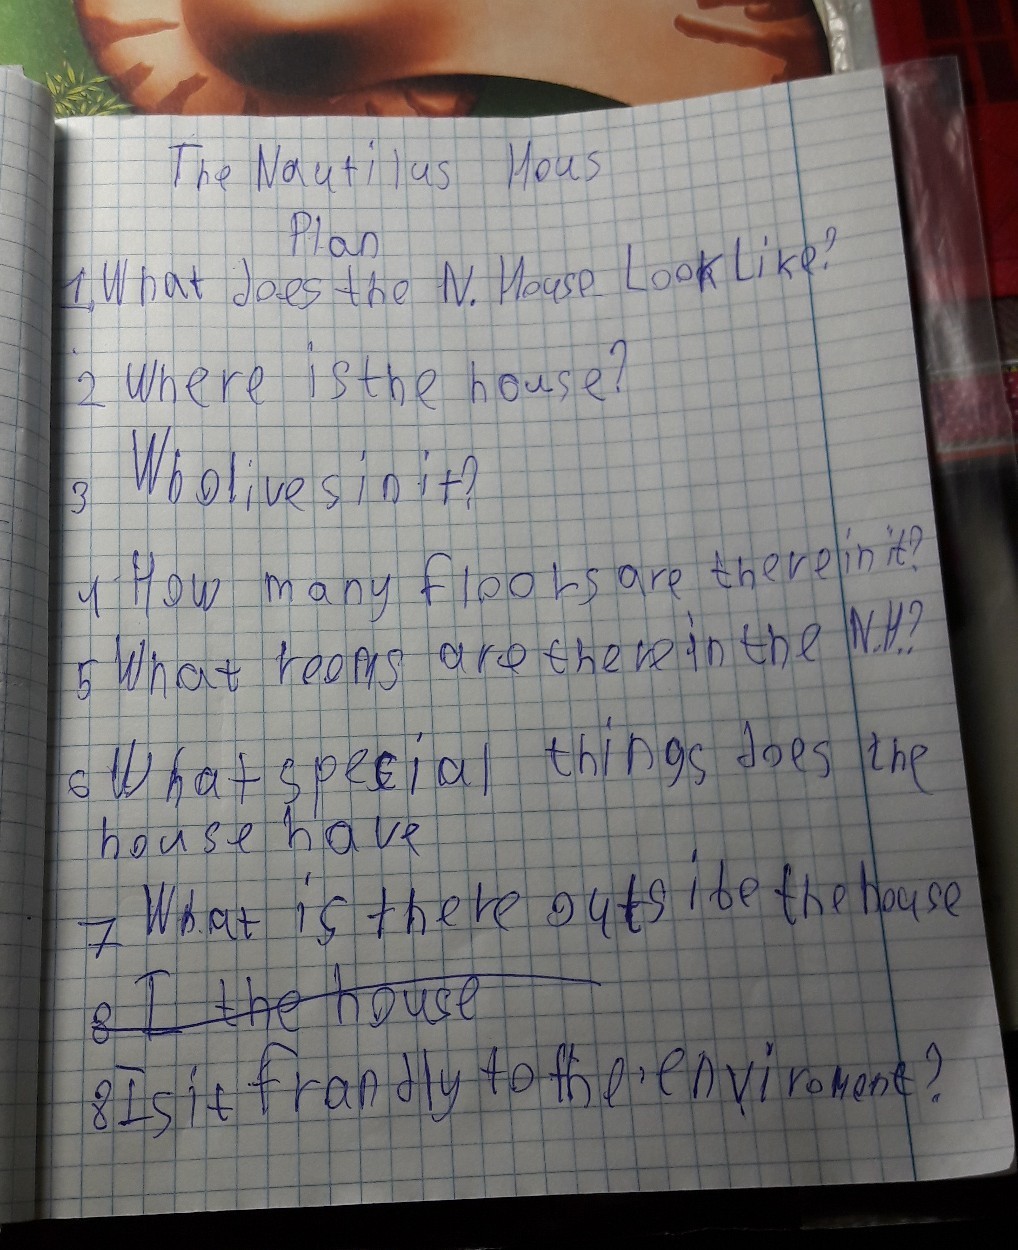 The Nautilus Hous
Plan
1, What does the N. House Look Like?
2 Where is the house?
3 Who lives in it?
4 How many floors are there in it?
5 What rooms are there in the N.H.?
6 What special things does the
house have
7 What is there outside the house
8 I the house
8 Is it frandly to the enviroment?